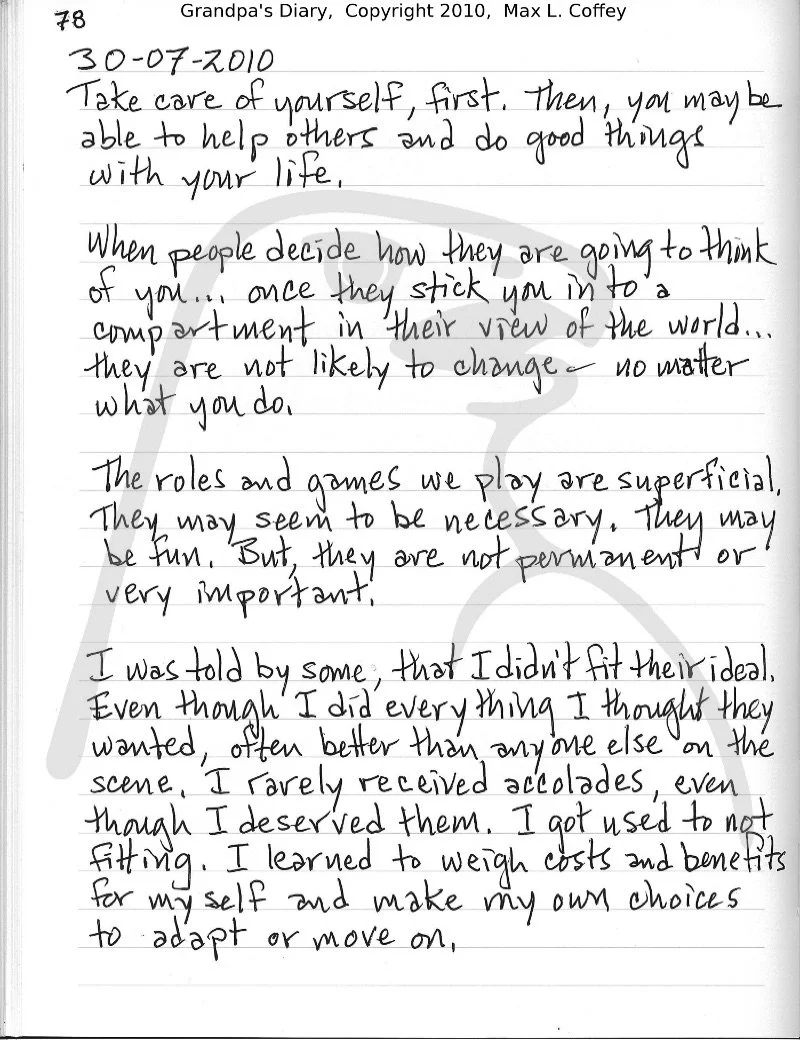 Grandpa's Diary, Copyright 2010, Max L. Coffey
78
30-07-2010
Take care of yourself, first. Then, you may be
able to help others and do good things
with your life.
When people decide how they are going to think
of you... once they stick you in to a
compartment in their view of the world...
they are not likely to change - no matter
what you do.
The roles and games we play are superficial.
They may seem to be necessary. They may
be fun. But, they are not permanent or
very important.
I was told by some, that I didn't fit their ideal.
Even though I did everything I thought they
wanted, often better than anyone else on the
scene. I rarely received accolades, even
though I deserved them. I got used to not
fitting. I learned to weigh costs and benefits
for my self and make my own choices
to adapt or move on.